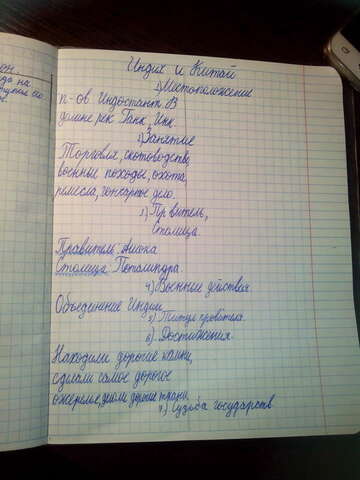 Индия и Китай
1) Местоположение
п-ов Индостант. В
долине рек Ганк, Инк.
2) Занятие
Торговля, скотоводство,
военные походы, охота,
ремесла, гончарное дело.
3) Првитель,
Столица.
Правитель. Ашока
Столица.
4) Военные действия.
Объединение Индии
5) Титул правителя.
6) Достижения.
Находили дорогие камни,
сделали самое дорогое
ожерелье, дорогие ткани.
7) Судьба государств.